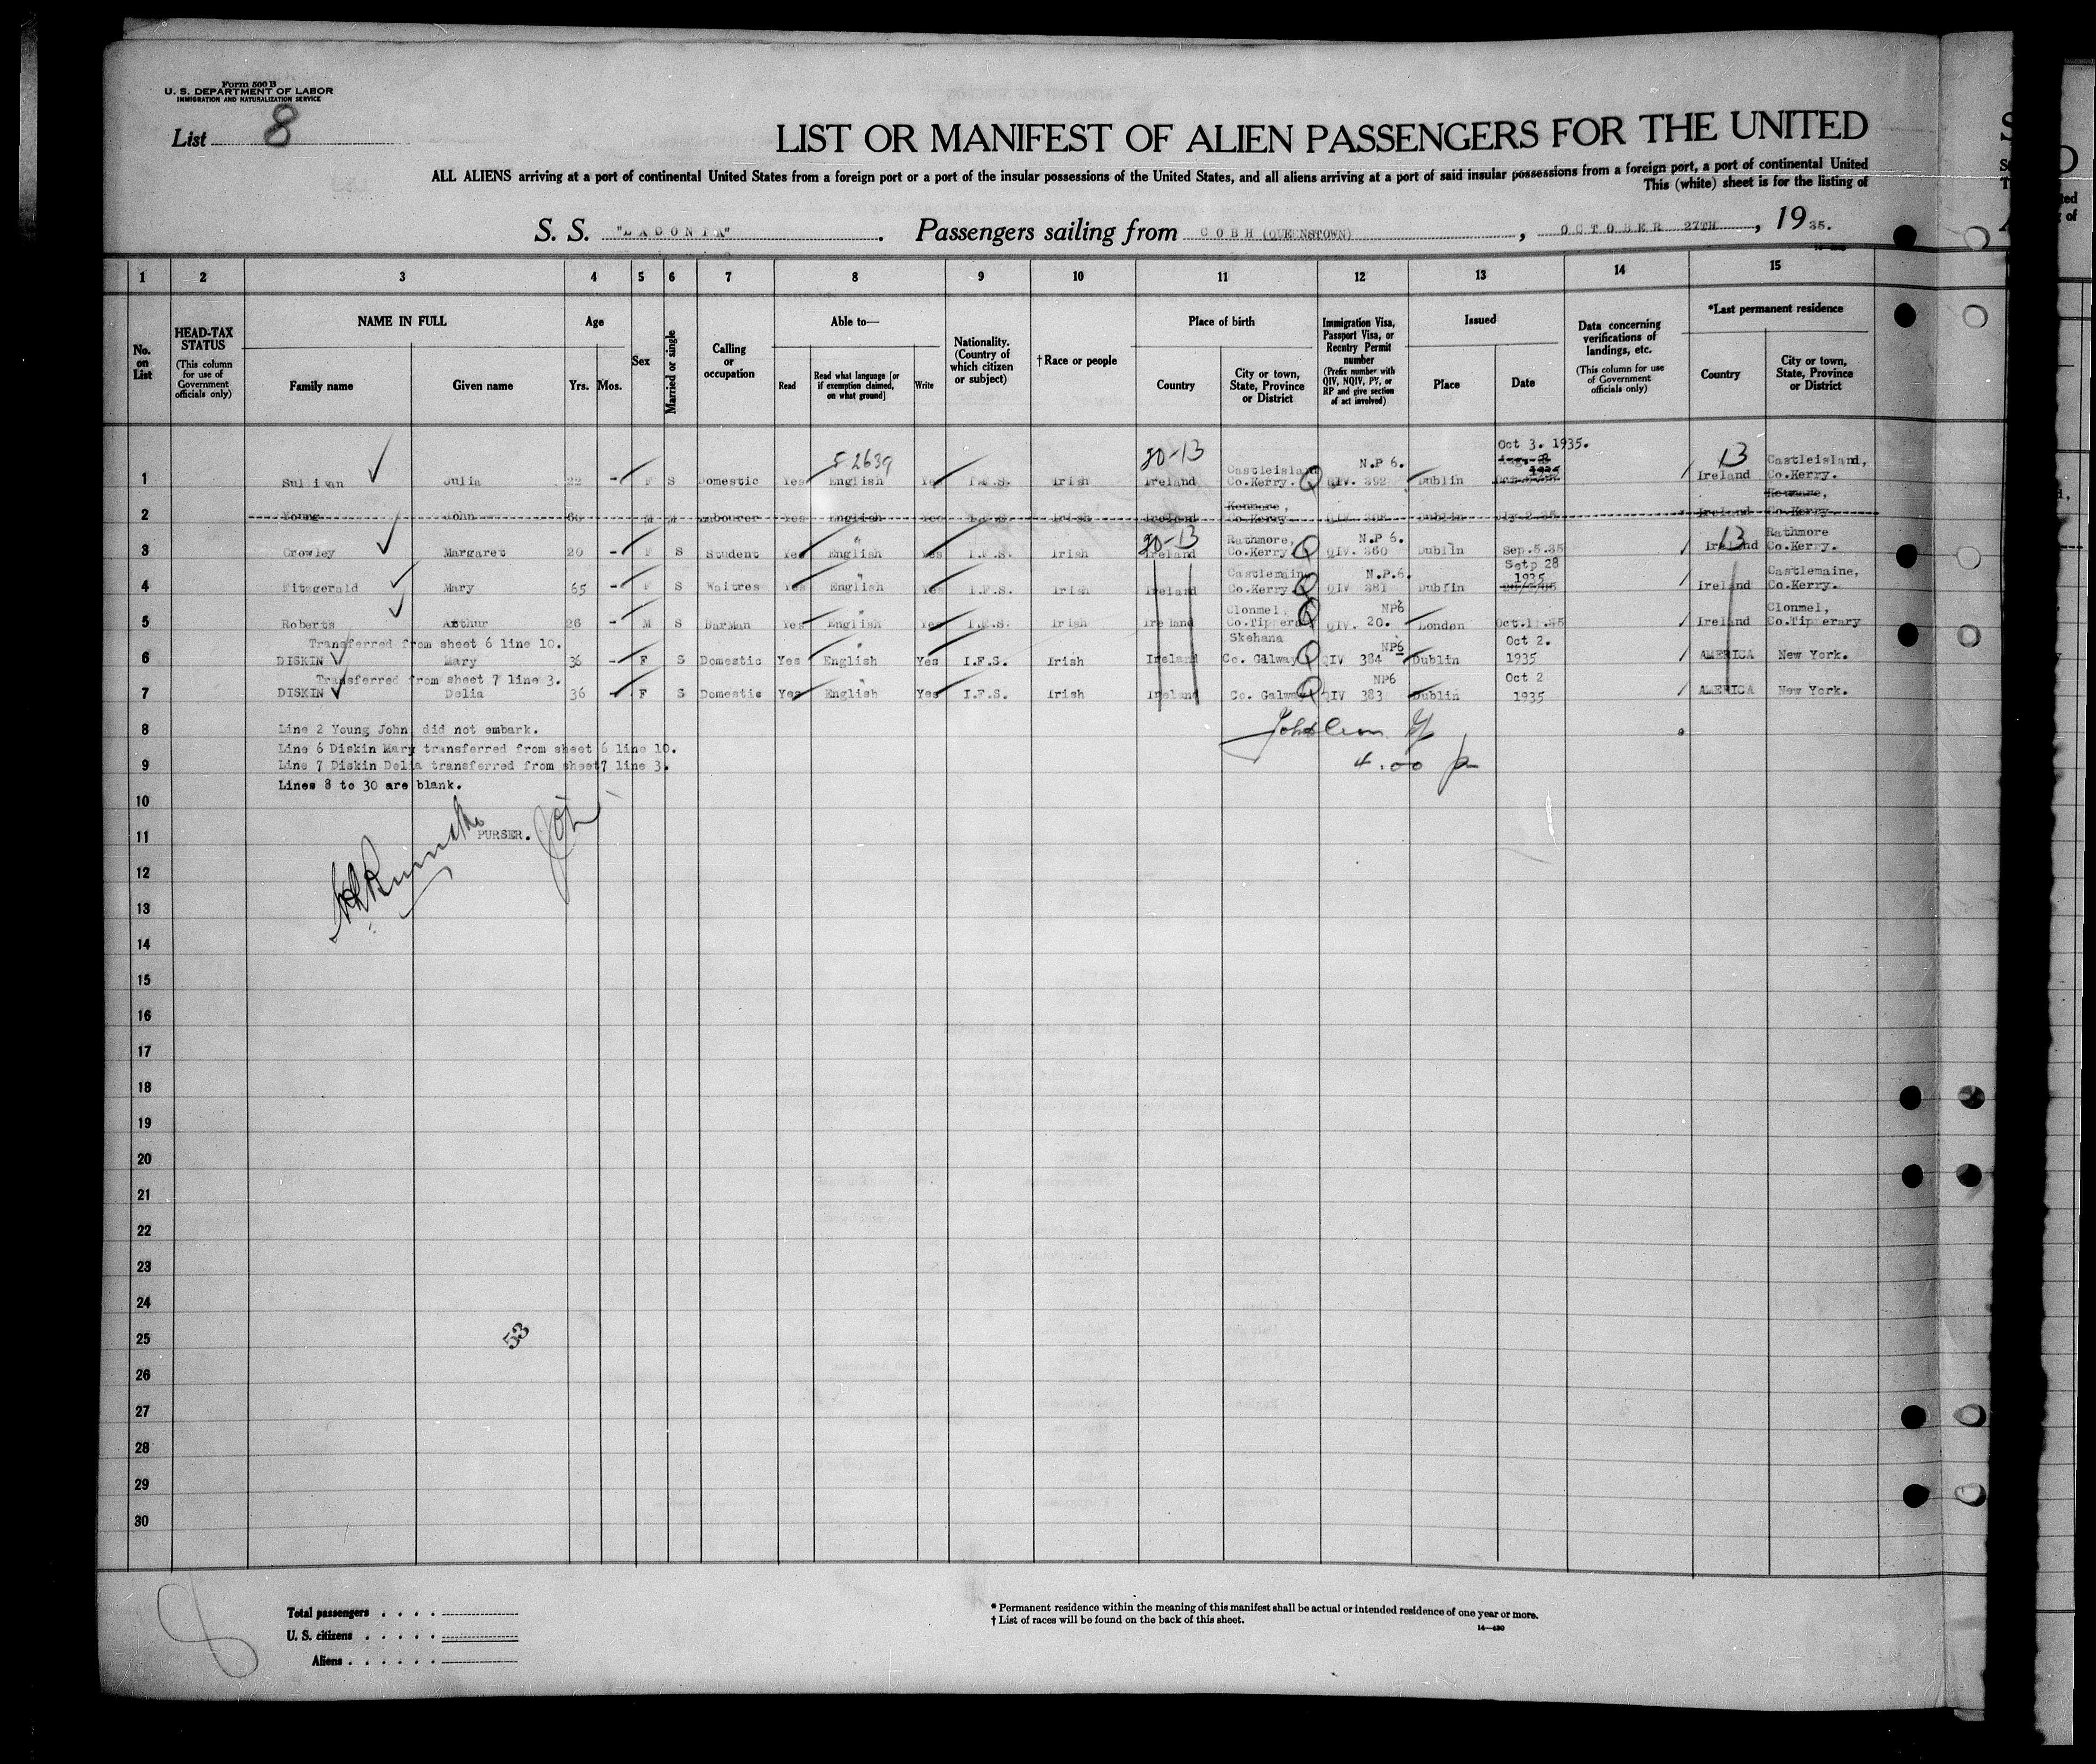 Form 500 B
U. S. DEPARTMENT OF LABOR
IMMIGRATION AND NATURALIZATION SERVICE
List 8
LIST OR MANIFEST OF ALIEN PASSENGERS FOR THE UNITED
ALL ALIENS arriving at a port of continental United States from a foreign port or a port of the insular possessions of the United States, and all aliens arriving at a port of said insular possessions from a foreign port, a port of continental United
This (white) sheet is for the listing of
S. S. "LACONIA". Passengers sailing from COBH (QUEENSTOWN), OCTOBER 27TH, 1935.
1 2 3 4 5 6 7 8 9 10 11 12 13 14 15
No. on List
HEAD-TAX STATUS (This column for use of Government officials only)
NAME IN FULL Family name Given name
Age Yrs. Mos.
Sex
Married or single
Calling or occupation
Able to— Read Read what language [or if exemption claimed, on what ground] Write
Nationality. (Country of which citizen or subject)
†Race or people
Place of birth Country City or town, State, Province or District
Immigration Visa, Passport Visa, or Reentry Permit number (Prefix number with QIV, NQIV, PV, or RP and give section of act involved)
Issued Place Date
Data concerning verifications of landings, etc. (This column for use of Government officials only)
*Last permanent residence Country City or town, State, Province or District
Oct 3. 1935.
5 2639 20-13 N.P 6. 13
1 Sullivan Julia 22 - F S Domestic Yes English Yes I.F.S. Irish Ireland Castleisland Co.Kerry. Q QIV. 392 Dublin Ireland Castleisland, Co.Kerry.
2 Young John 60 M M Labourer Yes English Yes I.F.S. Irish Ireland Kenmare, Co.Kerry QIV Dublin Ireland Kenmare, Co.Kerry
20-13 N.P 6. 13
3 Crowley Margaret 20 - F S Student Yes English Yes I.F.S. Irish Ireland Rathmore, Co.Kerry Q QIV. 360 Dublin Sep.5.35 Ireland Rathmore Co.Kerry.
4 Fitzgerald Mary 65 - F S Waitres Yes English Yes I.F.S. Irish Ireland Castlemaine Co.Kerry. Q N.P.6. QIV 381 Dublin Setp 28 1935 Ireland Castlemaine, Co.Kerry.
5 Roberts Arthur 26 - M S BarMan Yes English Yes I.F.S. Irish Ireland Clonmel, Co.Tipperary Q NP6 QIV. 20. London Oct.11.35 Ireland Clonmel, Co.Tipperary
Transferred from sheet 6 line 10.
6 DISKIN Mary 36 - F S Domestic Yes English Yes I.F.S. Irish Ireland Skehana Co. Galway Q NP6 QIV 384 Dublin Oct 2. 1935 AMERICA New York.
Transferred from sheet 7 line 3.
7 DISKIN Delia 36 - F S Domestic Yes English Yes I.F.S. Irish Ireland Co. Galway Q NP6 QIV 383 Dublin Oct 2 1935 AMERICA New York.
8 Line 2 Young John did not embark.
Line 6 Diskin Mary transferred from sheet 6 line 10.
9 Line 7 Diskin Delia transferred from sheet7 line 3.
4.00
Lines 8 to 30 are blank.
10
11 PURSER.
12
13
14
15
16
17
18
19
20
21
22
23
24
25 53
26
27
28
29
30
8
Total passengers . . . .
U. S. citizens . . . . .
Aliens . . . . . .
* Permanent residence within the meaning of this manifest shall be actual or intended residence of one year or more.
† List of races will be found on the back of this sheet.
14—430